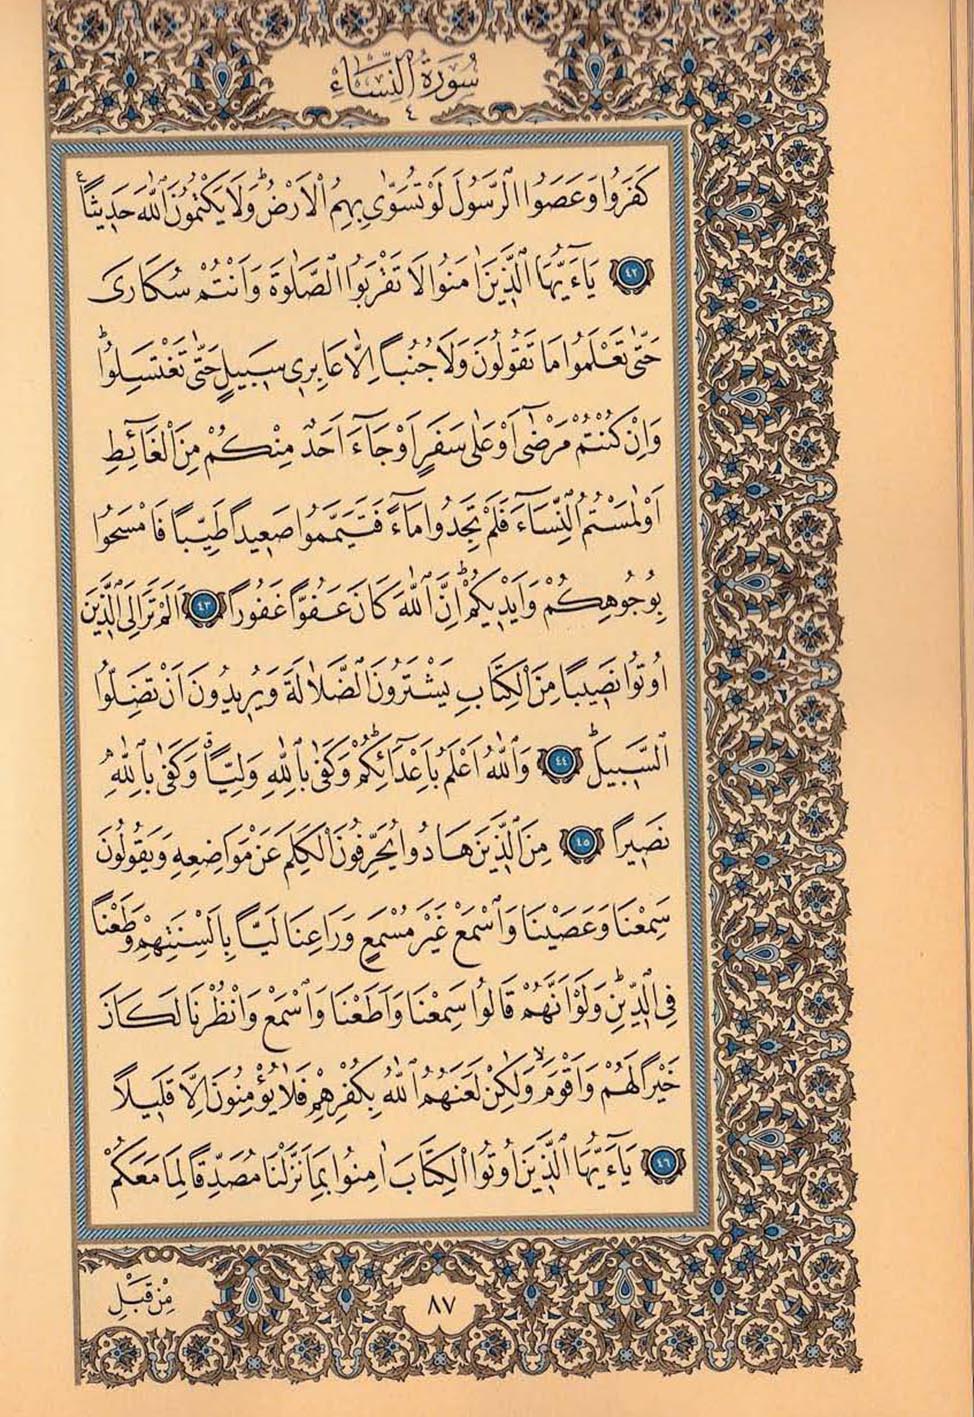 سُورَةُ النِّسَاءِ
٤
كَفَرُوا وَعَصَوُا الرَّسُولَ لَوْ تُسَوّٰى بِهِمُ الْاَرْضُۜ وَلَا يَكْتُمُونَ اللّٰهَ حَد۪يثًاۚ
﴿٤٢﴾ يَٓا اَيُّهَا الَّذ۪ينَ اٰمَنُوا لَا تَقْرَبُوا الصَّلٰوةَ وَاَنْتُمْ سُكَارٰى
حَتّٰى تَعْلَمُوا مَا تَقُولُونَ وَلَا جُنُبًا اِلَّا عَابِر۪ي سَب۪يلٍ حَتّٰى تَغْتَسِلُواۜ
وَاِنْ كُنْتُمْ مَرْضٰٓى اَوْ عَلٰى سَفَرٍ اَوْ جَٓاءَ اَحَدٌ مِنْكُمْ مِنَ الْغَٓائِطِ
اَوْ لٰمَسْتُمُ النِّسَٓاءَ فَلَمْ تَجِدُوا مَٓاءً فَتَيَمَّمُوا صَع۪يدًا طَيِّبًا فَامْسَحُوا
بِوُجُوهِكُمْ وَاَيْد۪يكُمْۜ اِنَّ اللّٰهَ كَانَ عَفُوًّا غَفُورًا ﴿٤٣﴾ اَلَمْ تَرَ اِلَى الَّذ۪ينَ
اُو۫تُوا نَص۪يبًا مِنَ الْكِتَابِ يَشْتَرُونَ الضَّلَالَةَ وَيُر۪يدُونَ اَنْ تَضِلُّوا
السَّب۪يلَۜ ﴿٤٤﴾ وَاللّٰهُ اَعْلَمُ بِاَعْدَٓائِكُمْۜ وَكَفٰى بِاللّٰهِ وَلِيًّاۗ وَكَفٰى بِاللّٰهِ
نَص۪يرًا ﴿٤٥﴾ مِنَ الَّذ۪ينَ هَادُوا يُحَرِّفُونَ الْكَلِمَ عَنْ مَوَاضِعِه۪ وَيَقُولُونَ
سَمِعْنَا وَعَصَيْنَا وَاسْمَعْ غَيْرَ مُسْمَعٍ وَرَاعِنَا لَيًّا بِاَلْسِنَتِهِمْ وَطَعْنًا
فِي الدّ۪ينِۜ وَلَوْ اَنَّهُمْ قَالُوا سَمِعْنَا وَاَطَعْنَا وَاسْمَعْ وَانْظُرْنَا لَكَانَ
خَيْرًا لَهُمْ وَاَقْوَمَۙ وَلٰكِنْ لَعَنَهُمُ اللّٰهُ بِكُفْرِهِمْ فَلَا يُؤْمِنُونَ اِلَّا قَل۪يلًا
﴿٤٦﴾ يَٓا اَيُّهَا الَّذ۪ينَ اُو۫تُوا الْكِتَابَ اٰمِنُوا بِمَا نَزَّلْنَا مُصَدِّقًا لِمَا مَعَكُمْ
مِنْ قَبْلِ
٨٧